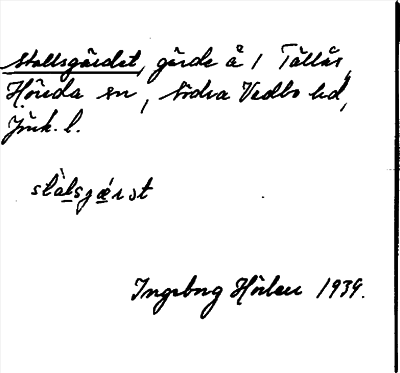 Stallsgärdet, gärde å 1 Tållås,
Hörda sn, Södra Vedbo hd,
Jönk. l.
stàlsgǽrst
Ingeborg Hörlen 1939.